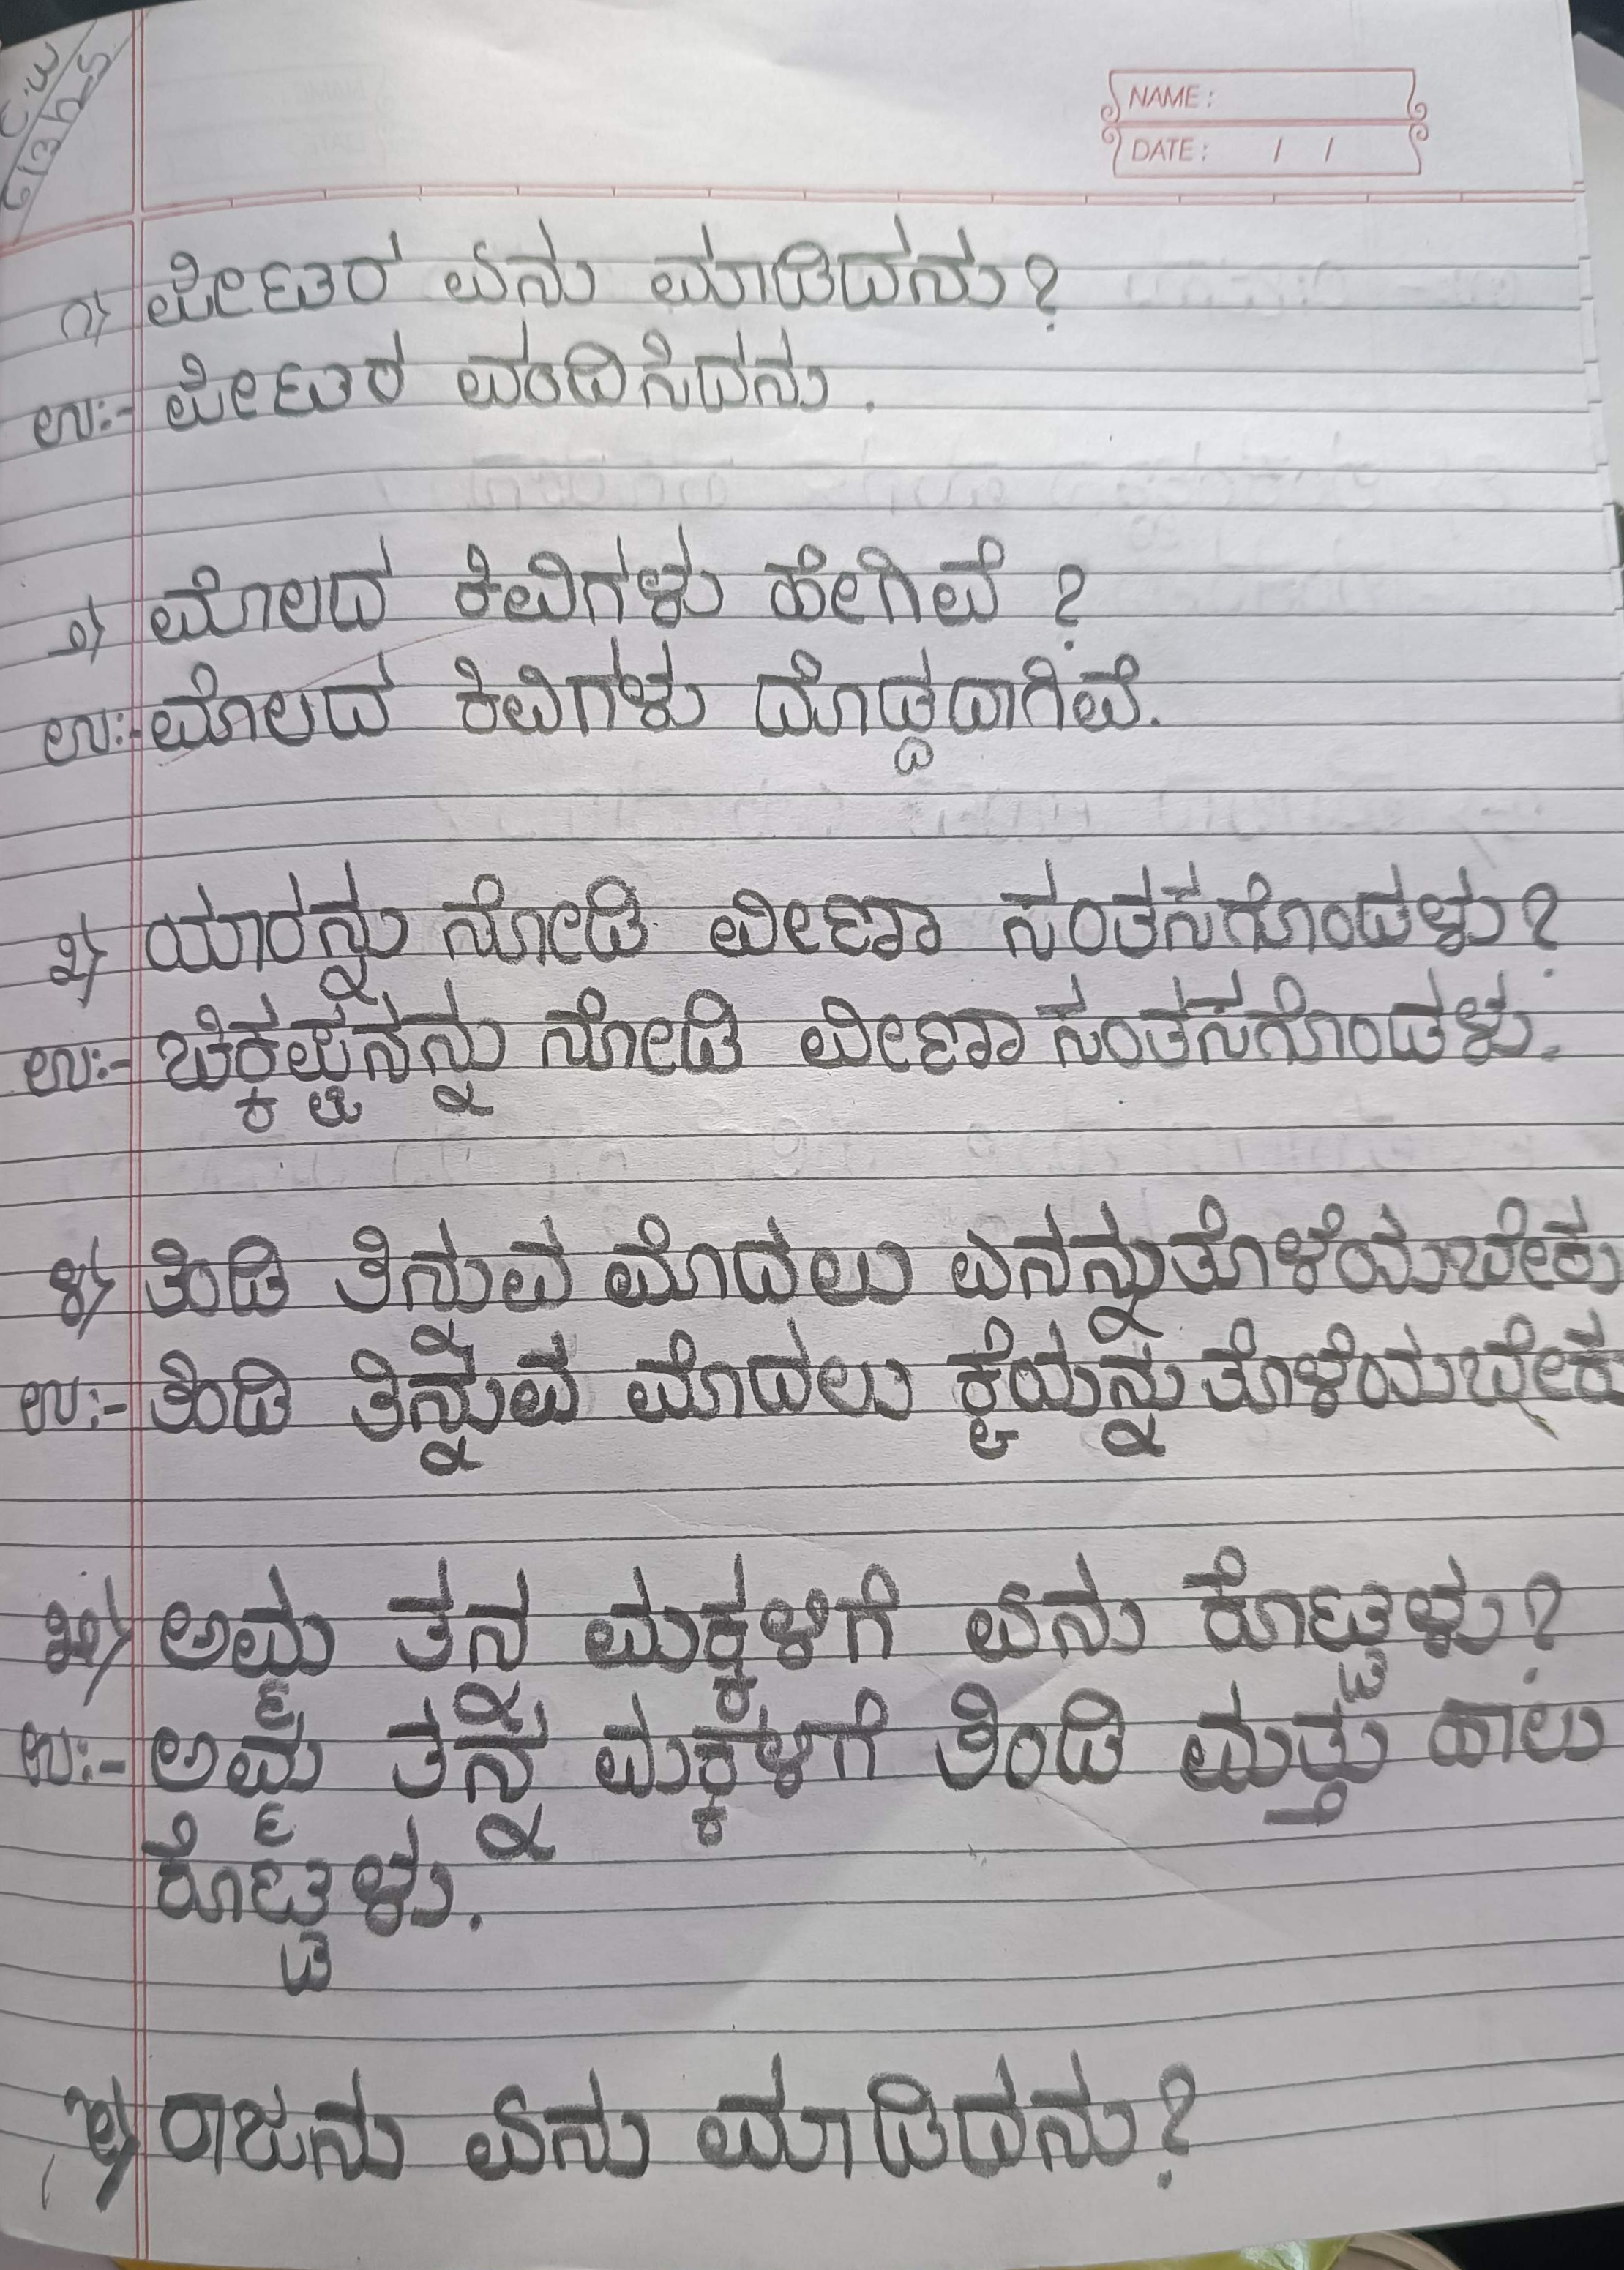 C.W
6/3/25
NAME :
DATE : / /
೧) ಪೀಟರ ಏನು ಮಾಡಿದನು?
ಉ:- ಪೀಟರ ವಂದಿಸಿದನು.
೨) ಮೊಲದ ಕಿವಿಗಳು ಹೇಗಿವೆ ?
ಉ:- ಮೊಲದ ಕಿವಿಗಳು ದೊಡ್ಡದಾಗಿವೆ.
೩) ಯಾರನ್ನು ನೋಡಿ ವೀಣಾ ಸಂತಸಗೊಂಡಳು?
ಉ:- ಚಿಕ್ಕಪ್ಪನನ್ನು ನೋಡಿ ವೀಣಾ ಸಂತಸಗೊಂಡಳು.
೪) ತಿಂಡಿ ತಿನ್ನುವ ಮೊದಲು ಏನನ್ನು ತೊಳೆಯಬೇಕು
ಉ:- ತಿಂಡಿ ತಿನ್ನುವ ಮೊದಲು ಕೈಯನ್ನು ತೊಳೆಯಬೇಕು
೫) ಅಮ್ಮ ತನ್ನ ಮಕ್ಕಳಿಗೆ ಏನು ಕೊಟ್ಟಳು?
ಉ:- ಅಮ್ಮ ತನ್ನ ಮಕ್ಕಳಿಗೆ ತಿಂಡಿ ಮತ್ತು ಹಾಲು
ಕೊಟ್ಟಳು.
೬) ರಾಜನು ಏನು ಮಾಡಿದನು?